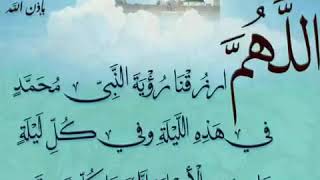 بإذن الله
اللَّهُمَّ
ارزُقْنَا رُؤْيَةَ النَّبِيِّ مُحَمَّدٍ
فِي هَذِهِ اللَّيْلَةِ وَفِي كُلِّ لَيْلَةٍ